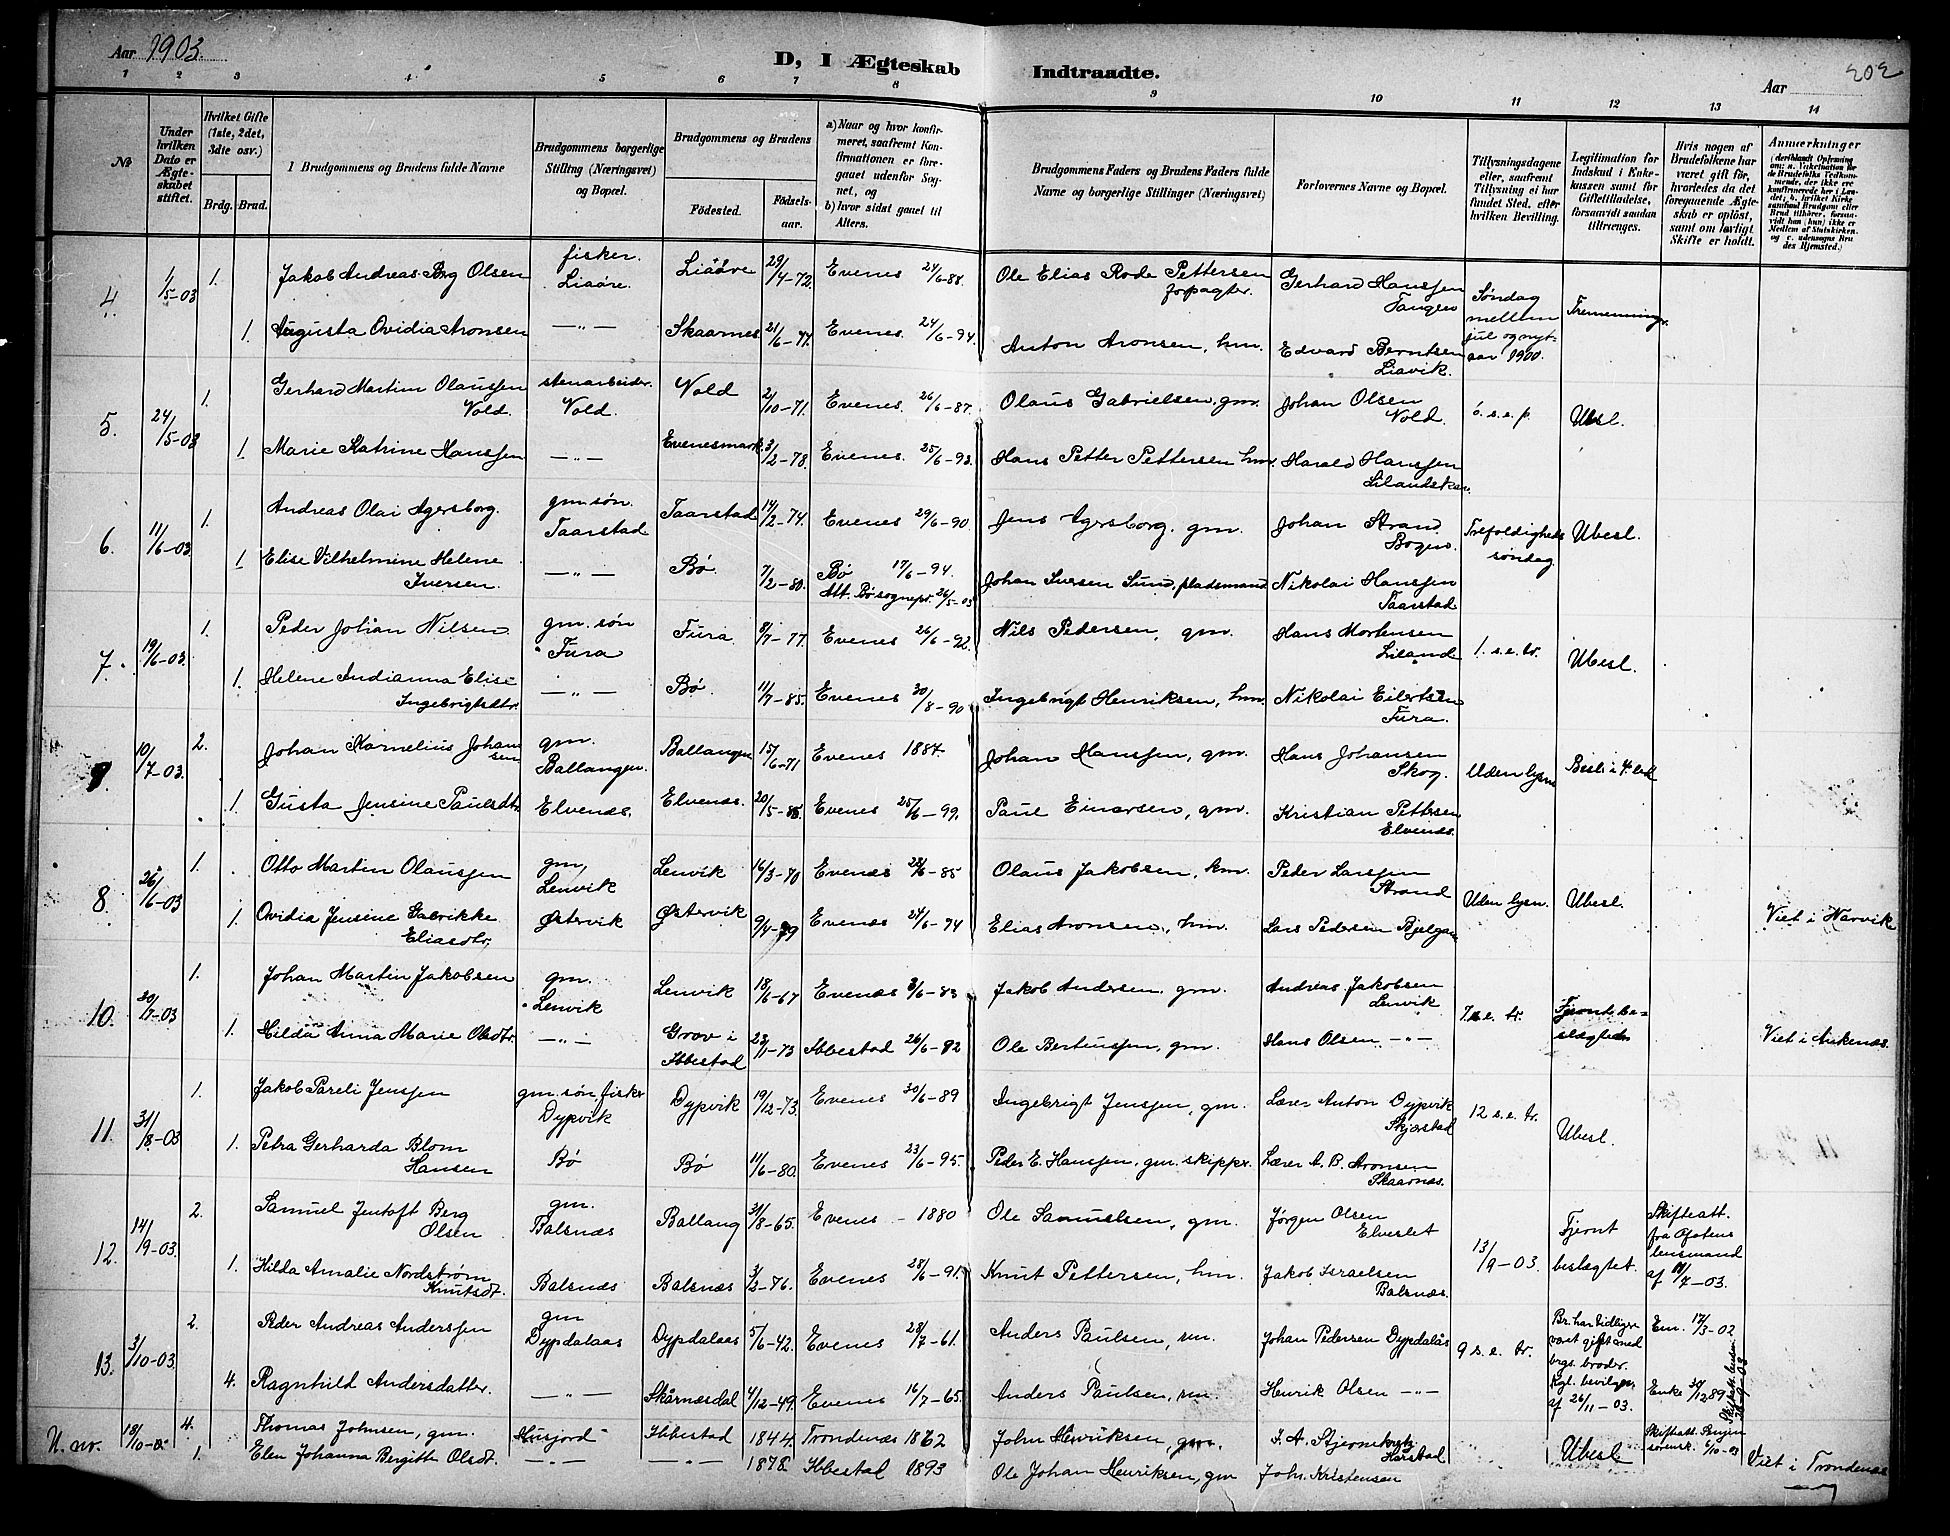 Aar 1903.
D, I Ægteskab Indtraadte.
202
Aar
1 2 3 4 5 6 7 8 9 10 11 12 13 14
No
Under hvilken Dato er Ægteskabet stiftet.
Hvilket Gifte (1ste, 2det, 3die osv.)
Brdg. Brud.
1 Brudgommens og Brudens fulde Navne
Brudgommens borgerlige Stilling (Næringsvei) og Bopæl.
Brudgommens og Brudens
Fødested. Fødselsaar.
a) Naar og hvor konfirmeret, saafremt Konfirmationen er foregaaet udenfor Sognet, og
b) hvor sidst gaaet til Alters.
Brudgommens Faders og Brudens Faders fulde Navne og borgerlige Stillinger (Næringsvei)
Forlovernes Navne og Bopæl.
Tillysningsdagene eller, saafremt Tillysning ei har fundet Sted, efter hvilken Bevilling.
Legitimation for Indskud i Enkekassen samt for Giftetilladelse, forsaavidt saadan tiltrænges.
Hvis nogen af Brudefolkene har været gift før, hvorledes da det foregaaende Ægteskab er opløst, samt om lovligt Skifte er holdt.
Anmærkninger
4. 1/5-03 1. Jakob Andreas Berg Olsen fisker. Liaøre. 29/4-72. Evenes 24/6-88. Ole Elias Rode Pettersen forpagter. Gerhard Hanssen Tangen Søndag mellem jul og nytaar 1900. Tremenninge.
1. Augusta Ovidia Aronsen —„— Skaarnes 21/6-77. Evenes. 24/6-94. Anton Aronsen, hm. Edvard Berntsen Liavik.
5. 24/5-03 1. Gerhard Martin Olaussen Vold. stenarbeider. Vold. Vold 2/10-71. Evenes. 26/6-87. Olaus Gabrielsen, gm. Johan Olsen Vold. 6. s. e. p. Ubesl.
1. Marie Katrine Hanssen —„— Evenesmark 3/2-78. Evenes. 25/6-93. Hans Petter Pettersen hm. Harald Hanssen
6. 11/6-03 1. Andreas Olai Agersborg. gm. søn. Taarstad Taarstad 14/2-74. Evenes 29/6-90. Jens Agersborg. gm. Johan Strand Bogen. Trefoldigheds søndag Ubesl.
1 Elise Vilhelmine Helene Iversen. —„— Bø. 7/2-80. Bø 17/6-94. Att. Bø sognepr. 26/5-03 Johan Iversen Sund, pladsmand Nikolai Hanssen Taarstad
7. 19/6-03. 1. Peder Johan Nilsen gm. søn Fura Fura 8/7-77 Evenes 26/6-92. Nils Pedersen, gm. Hans Mortensen Liland 1. s. e. tr. Ubesl.
1. Helene Andianna Elise Ingebrigtsdtr. —„— Bø 11/7-85. Evenes 30/8-90 Ingebrigt Henriksen, hm. Nikolai Eilertsen Fura.
9. 10/7-03. 2. Johan Kornelius Johansen gm. Ballangen. Ballangen 15/6-71 Evenes 1887. Johan Hanssen, gm. Hans Johansen Skog. Uden lysn. Besl. i 4. led
1. Gusta Jensine Paulsdtr. Elvenæs. Elvenæs. 20/5-85. Evenes 25/6-99. Paul Einarsen, gm. Kristian Pettersen Elvenæs.
8. 26/6-03 1. Otto Martin Olaussen gm, Lenvik Lenvik 16/3-70 Evenæs 28/6-85 Olaus Jakobsen, hm. Peder Larssen Strand Uden lysn. Ubesl.
1. Ovidia Jensine Eliasdtr. Østervik Østervik 9/4-79 Evenæs 24/6-94 Elias Aronsen, hm. Lars Pedersen Viet i Narvik
10. 30/7-03 1. Johan Martin Jakobsen gm. Lenvik Lenvik 18/6-67 Evenæs /6-83 Jakob Andersen, gm. Andreas Jakobsen Lenvik 7. s. e. tr. Fjernt beslægtede
1. Hilda Anna Marie Olsdtr. —„— Grov i Ibbestad 23/1-73 Ibbestad 26/6-82 Ole Bertenssen, gm. Hans Olsen —„— Viet i Ankenæs.
11. 31/8-03 1. Jakob Pareli Jenssen gm. søn, fisker Dypvik Dypvik 19/12-73. Evenes 30/6-89 Ingebrigt Jenssen, gm. Lærer Anton Dypvik Skjæstad 12 s. e. tr. Ubesl.
1. Petra Gerharda Blom Hansen Bø Bø 11/6-80. Evenes 23/6-95. Peder E. Hanssen, gm. skipper. Lærer A. B. Aronsen Skaarnæs.
12. 14/9-03. 2. Samuel Jentoft Berg Olsen gm. Balsnæs Ballang 31/8-65. Evenes - 1880 Ole Samuelsen, gm. Jørgen Olsen Elveslet 13/9-03. Fjernt beslægtet. Skifteatt. fra Ofotens lensmand af /7-03.
1. Hilda Amalie Nordstrøm Knutsdt. Balsnæs Balsnæs 3/12-76. Evenes 28/6-91. Knut Pettersen, hm. Jakob Israelsen Balsnæs.
13. 3/10-03. 2. Peder Andreas Anderssen gm Dypdalaas Dypdalaas 5/6-42. Evenes 28/7-61. Anders Paulsen, Johan Pedersen Dypdalås 9 s. e. tr. Br. har tidligere været gift med brgs. broder. Kgl. bevilgn. af 26/11-03. Em. 17/3-02
4. Ragnhild Andersdatter. —„— Skårnæsdal 4/12-49. Evenes 16/7-65. Anders Paulsen, Henrik Olsen —„— Enke 30/12 89
U. nr. 18/10-0 4. Thomas Johnsen, gm. Husjord Ibbestad 1844. Trondenæs 1862 John Henriksen, gm. Harstad Ubesl. Skifteatt.
1. Elen Johanna Bergitte Olsdt. —„— —„— 1878 Ibbestad 1893 Ole Johan Henriksen, gm Joh. Kristensen Viet i Trondenæs